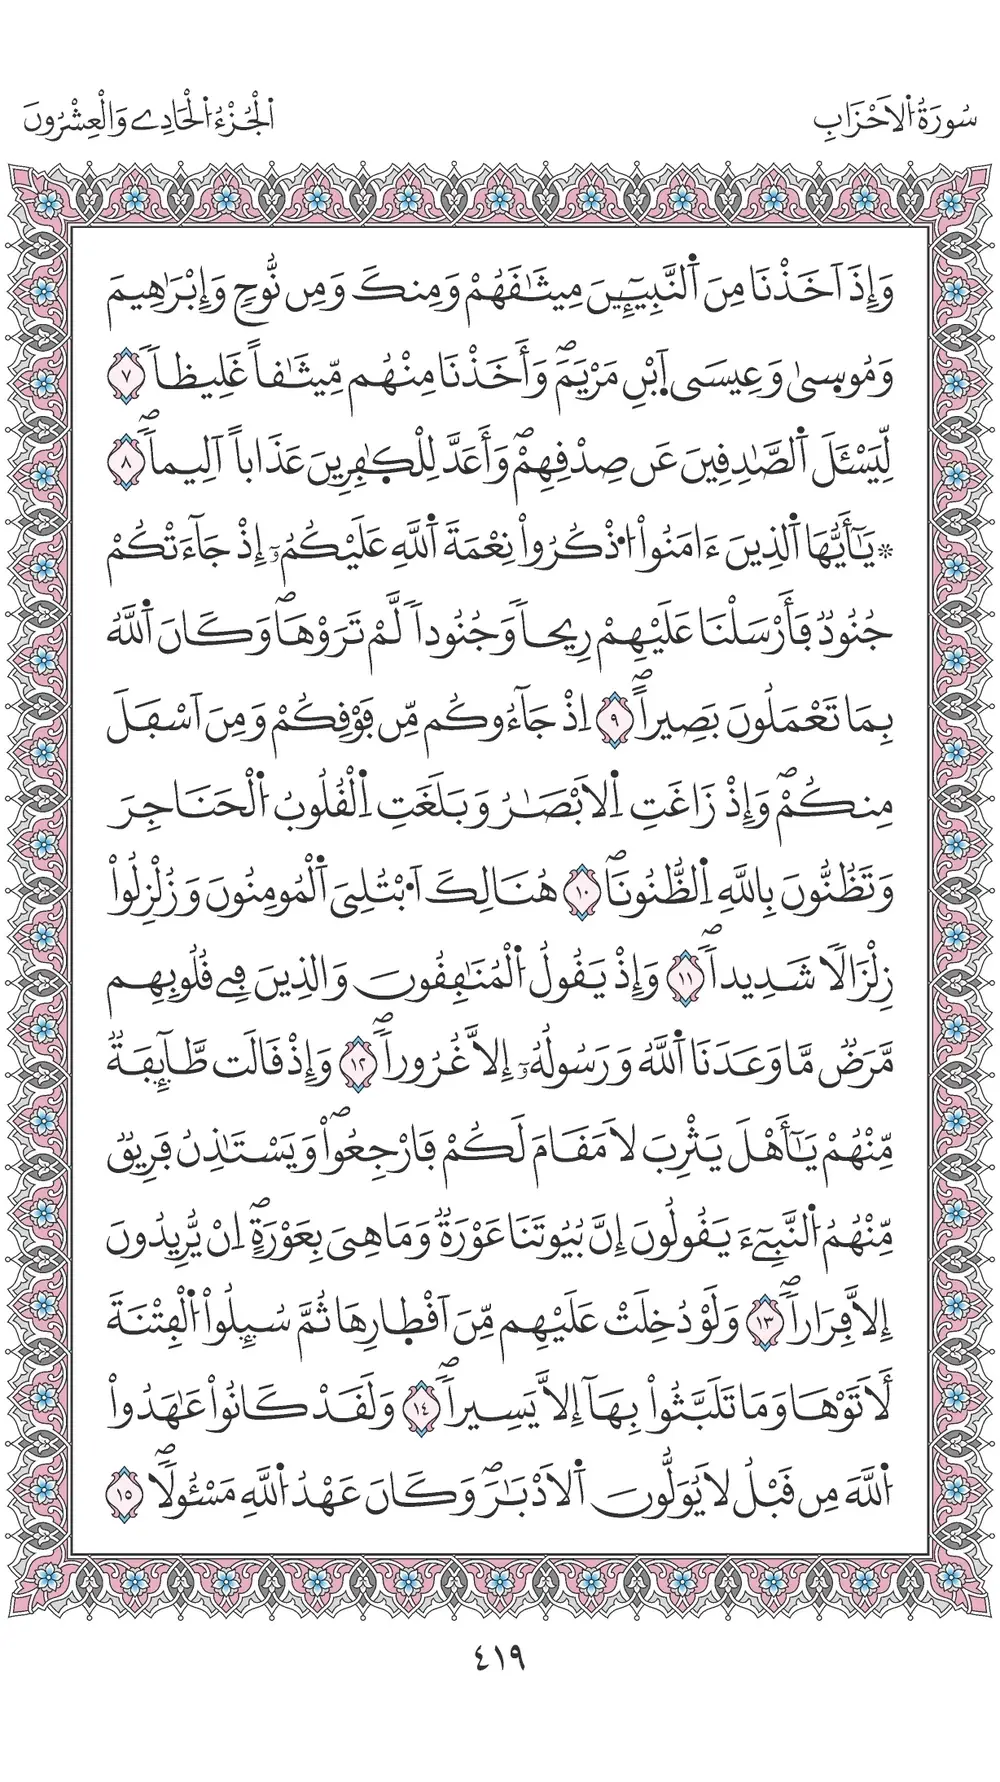 سُورَةُ اُ۬لَاحْزَابِ
اَ۬لْجُزْءُ اُ۬لْحَادِے وَالْعِشْرُونَ
وَإِذَ اَخَذْنَا مِنَ اَ۬لنَّبِيٓـِٕينَ مِيثَٰقَهُمْ وَمِنكَ وَمِن نُّوحٖ وَإِبْرَٰهِيمَ
وَمُوس۪يٰ وَعِيسَي اَ۪بْنِ مَرْيَمَۖ وَأَخَذْنَا مِنْهُم مِّيثَٰقاً غَلِيظاٗ ٧
لِّيَسْـَٔلَ اَ۬لصَّٰدِقِينَ عَن صِدْقِهِمْۖ وَأَعَدَّ لِلْكٰ۪فِرِينَ عَذَاباً اَلِيماٗۖ ٨
۞ يَٰٓأَيُّهَا اَ۬لذِينَ ءَامَنُواْ اُ۟ذْكُرُواْ نِعْمَةَ اَ۬للَّهِ عَلَيْكُمُۥٓ إِذْ جَآءَتْكُمْ
جُنُودٞ فَأَرْسَلْنَا عَلَيْهِمْ رِيحاٗ وَجُنُوداٗ لَّمْ تَرَوْهَاۖ وَكَانَ اَ۬للَّهُ
بِمَا تَعْمَلُونَ بَصِيراًۖ ٩ اِذْ جَآءُوكُم مِّن فَوْقِكُمْ وَمِنَ اَسْفَلَ
مِنكُمْۖ وَإِذْ زَاغَتِ اِ۬لَابْصَٰرُ وَبَلَغَتِ اِ۬لْقُلُوبُ اُ۬لْحَنَاجِرَ
وَتَظُنُّونَ بِاللَّهِ اِ۬لظُّنُونَاۖ ١٠ هُنَالِكَ اَ۟بْتُلِيَ اَ۬لْمُومِنُونَ وَزُلْزِلُواْ
زِلْزَالاٗ شَدِيداٗۖ ١١ وَإِذْ يَقُولُ اُ۬لْمُنَٰفِقُونَ وَالذِينَ فِے قُلُوبِهِم
مَّرَضٞ مَّا وَعَدَنَا اَ۬للَّهُ وَرَسُولُهُۥٓ إِلَّا غُرُوراٗۖ ١٢ وَإِذْ قَالَت طَّآئِفَةٞ
مِّنْهُمْ يَٰٓأَهْلَ يَثْرِبَ لَا مَقَامَ لَكُمْ فَارْجِعُواْۖ وَيَسْتَٰذِنُ فَرِيقٞ
مِّنْهُمُ اُ۬لنَّبِيٓءَ يَقُولُونَ إِنَّ بُيُوتَنَا عَوْرَةٞ وَمَا هِيَ بِعَوْرَةٍۖ اِنْ يُّرِيدُونَ
إِلَّا فِرَاراٗۖ ١٣ وَلَوْ دُخِلَتْ عَلَيْهِم مِّنَ اَقْطٰ۪ارِهَا ثُمَّ سُئِلُواْ اُ۬لْفِتْنَةَ
لَأَتَوْهَا وَمَا تَلَبَّثُواْ بِهَآ إِلَّا يَسِيراٗۖ ١٤ وَلَقَدْ كَانُواْ عَٰهَدُواْ
اُ۬للَّهَ مِن قَبْلُ لَا يُوَلُّونَ اَ۬لَادْبَٰرَۖ وَكَانَ عَهْدُ اُ۬للَّهِ مَسْـُٔولاٗۖ ١٥
٤١٩